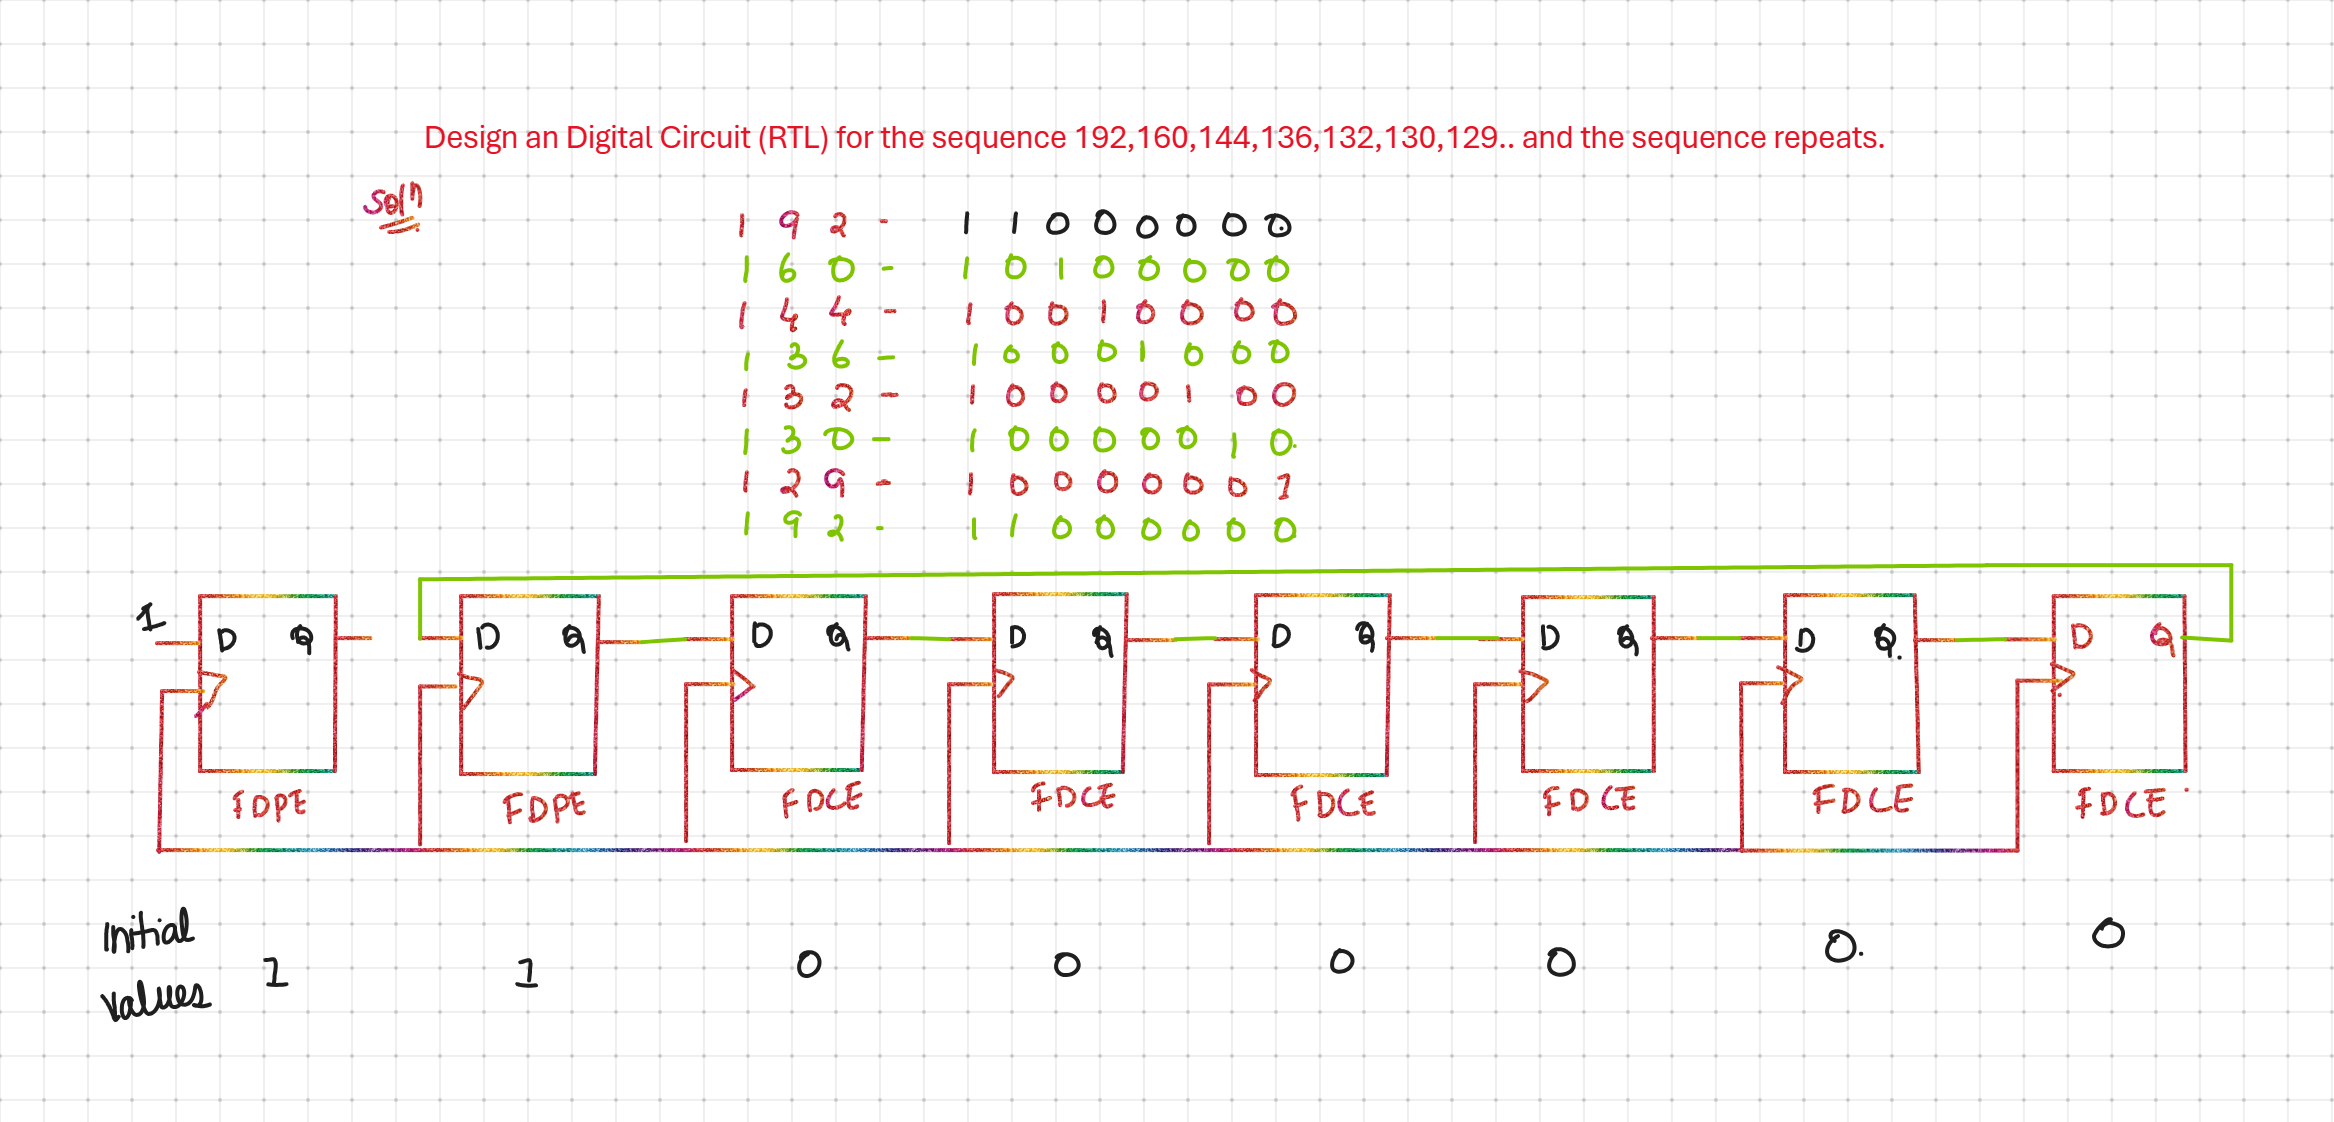 Design an Digital Circuit (RTL) for the sequence 192,160,144,136,132,130,129.. and the sequence repeats.
Soln
192 - 11000000
160 - 10100000
144 - 10010000
136 - 10001000
132 - 10000100
130 - 10000010
129 - 10000001
192 - 11000000
1 D Q D Q D Q D Q D Q D Q D Q. D Q
FDPE FDPE FDCE FDCE FDCE FDCE FDCE FDCE
Initial
values 1 1 0 0 0 0 0. 0